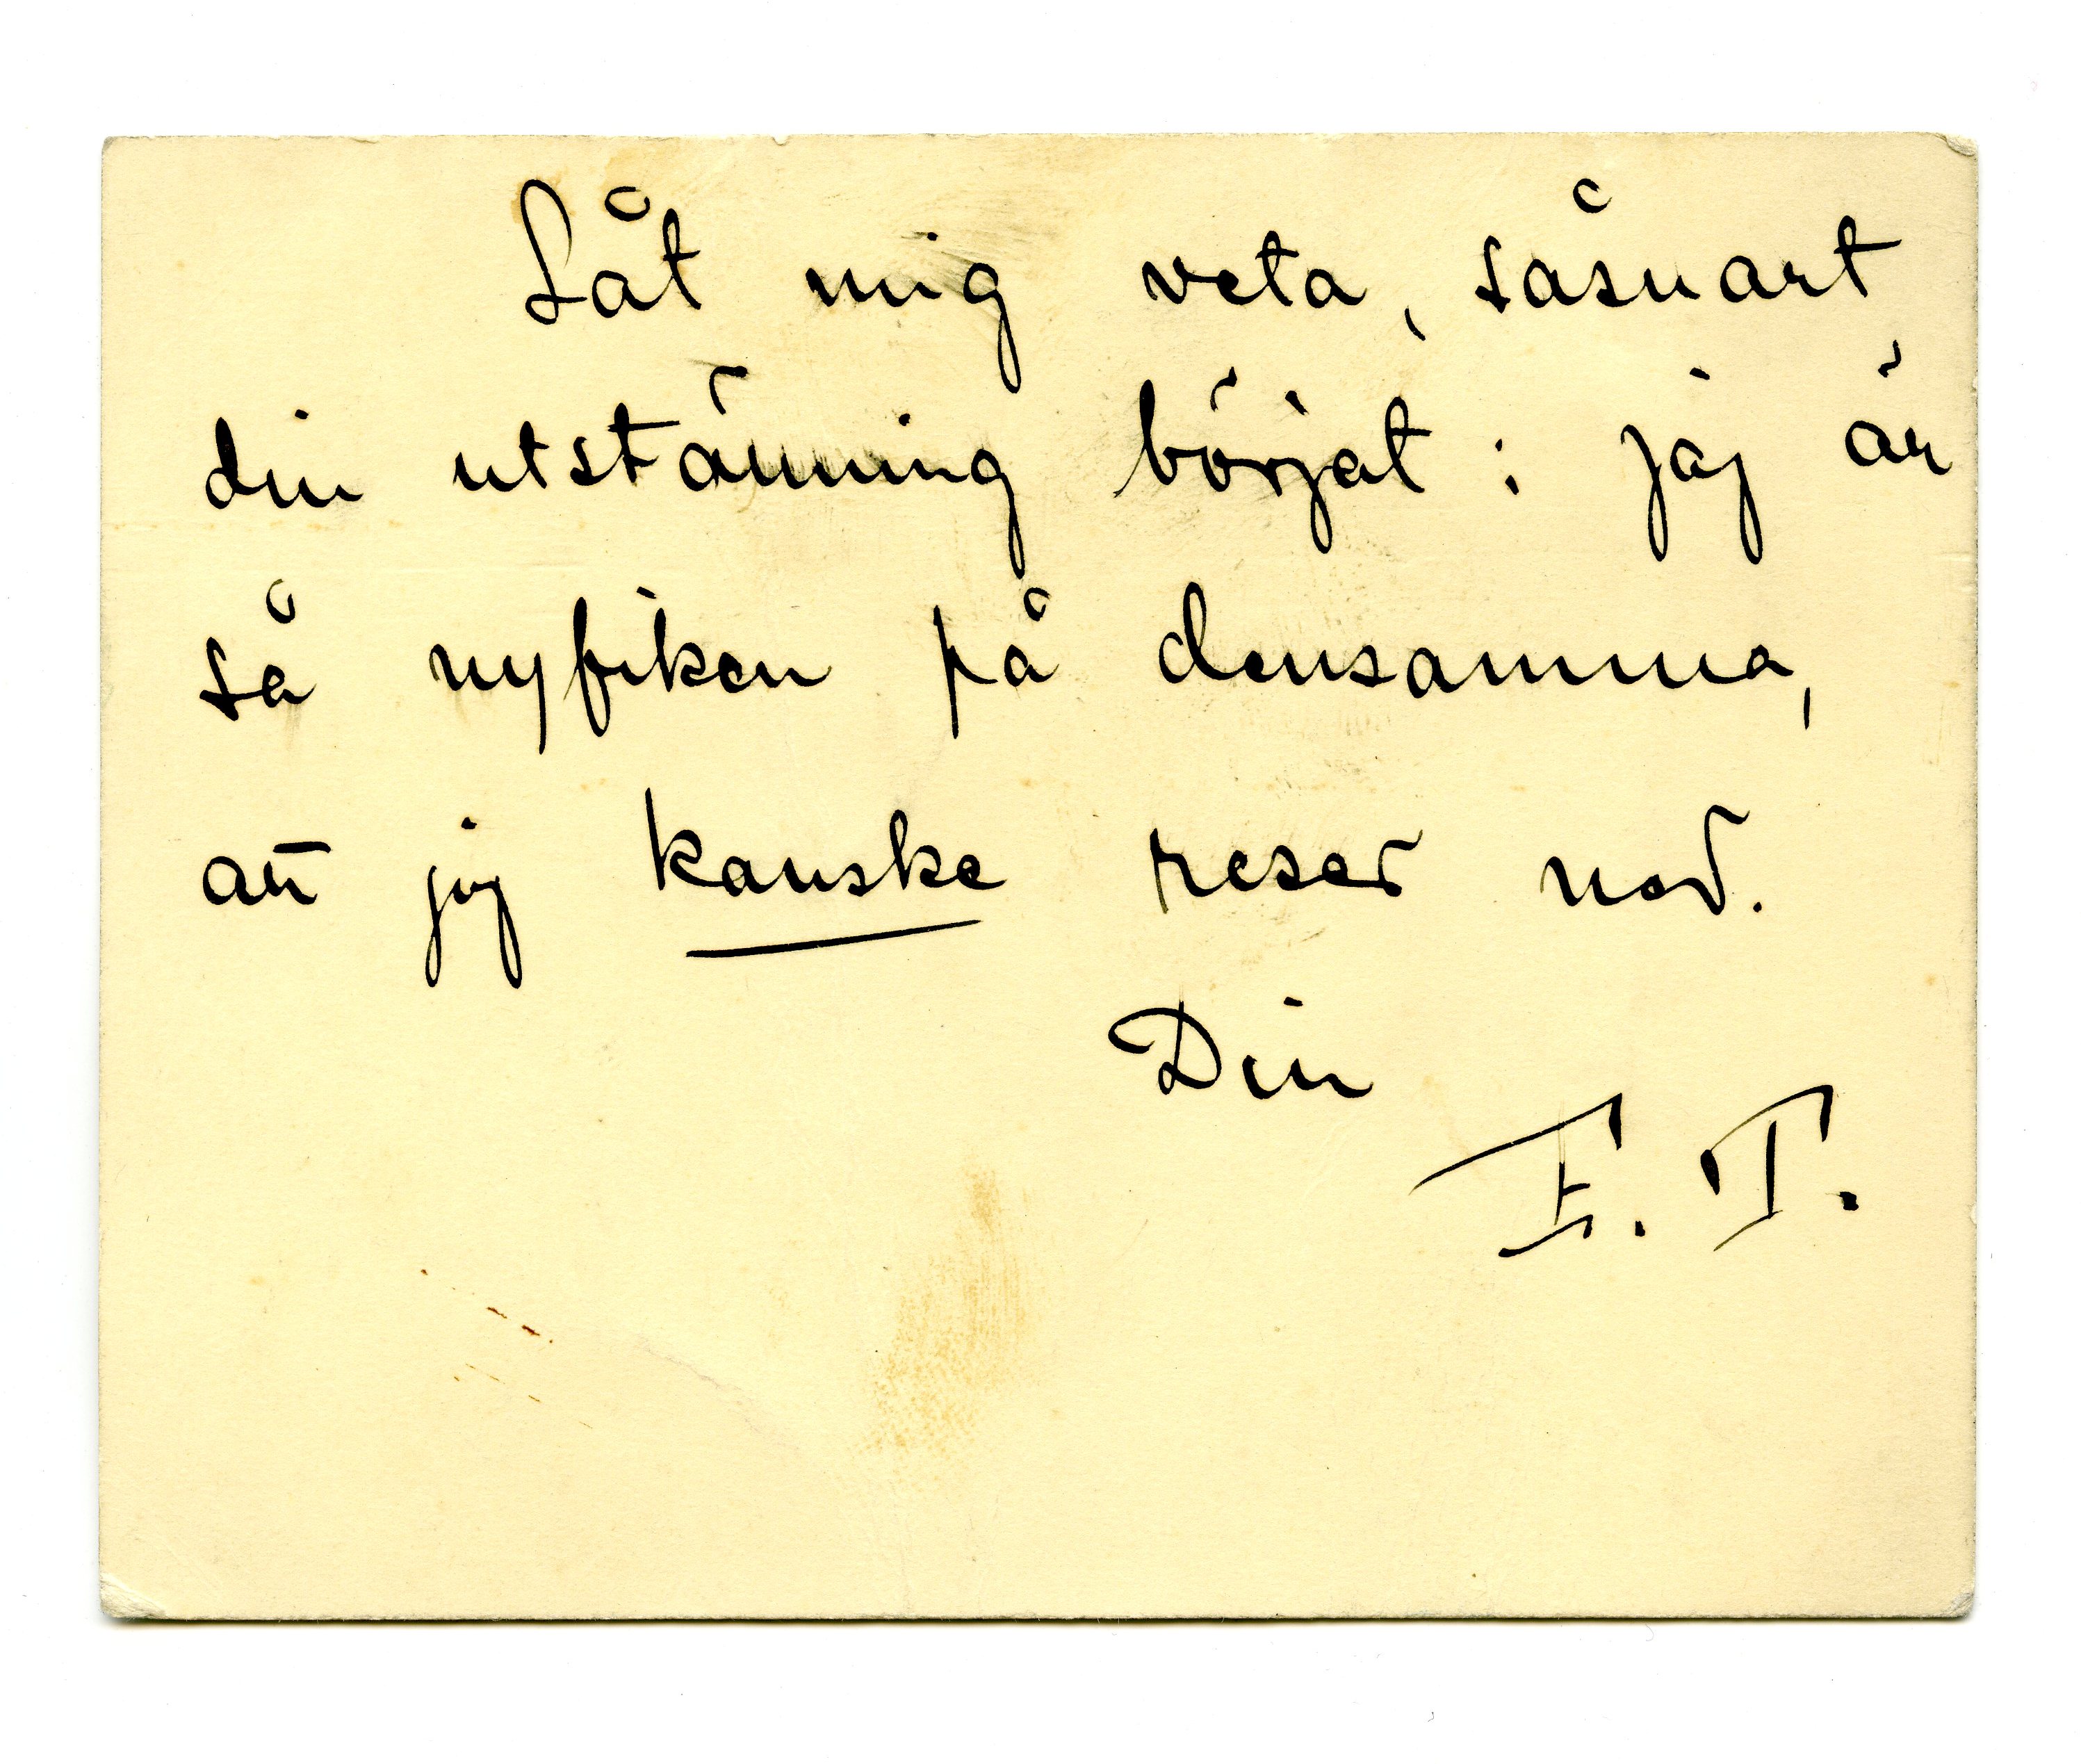 Låt mig veta, såsnart
din utstänning börjat: jag är
så nyfiken på densamma,
att jag kanske reser ned.
Din
E. T.